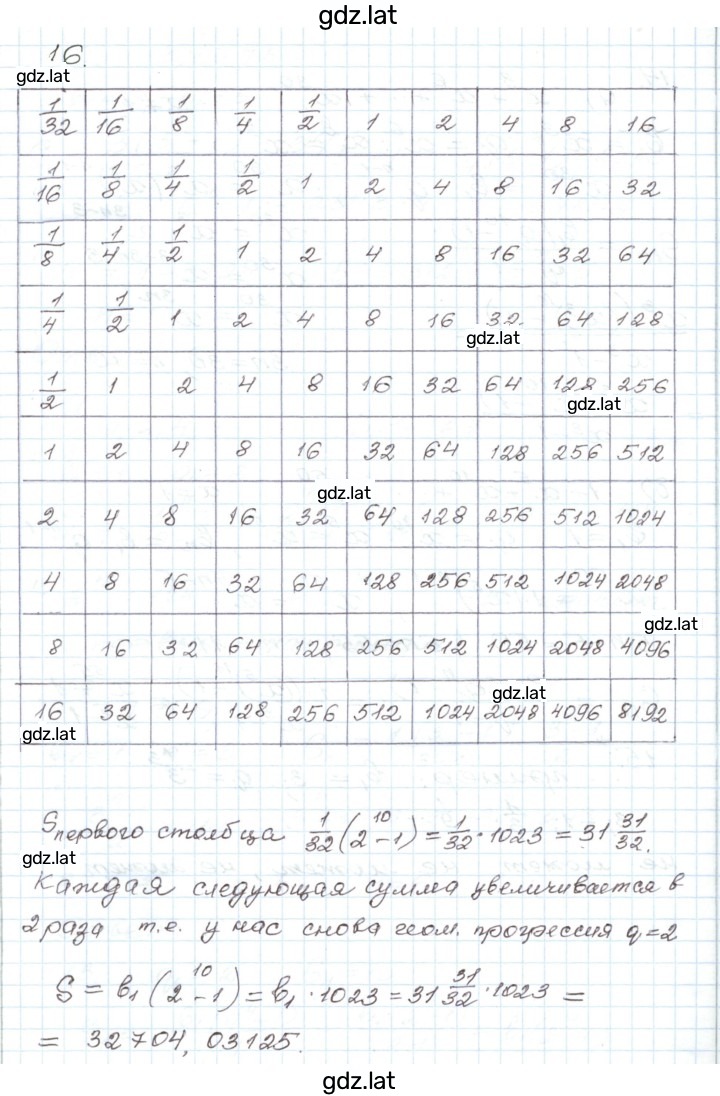 gdz.lat
16.
gdz.lat
1/32 1/16 1/8 1/4 1/2 1 2 4 8 16
1/16 1/8 1/4 1/2 1 2 4 8 16 32
1/8 1/4 1/2 1 2 4 8 16 32 64
1/4 1/2 1 2 4 8 16 32 64 128
gdz.lat
1/2 1 2 4 8 16 32 64 128 256
gdz.lat
1 2 4 8 16 32 64 128 256 512
gdz.lat
2 4 8 16 32 64 128 256 512 1024
4 8 16 32 64 128 256 512 1024 2048
gdz.lat
8 16 32 64 128 256 512 1024 2048 4096
gdz.lat
16 32 64 128 256 512 1024 2048 4096 8192
gdz.lat
Sпервого столбца 1/32(2^10-1) = 1/32·1023 = 31 31/32.
gdz.lat
Каждая следующая сумма увеличивается в
2 раза т.е. у нас снова геом. прогрессия q=2
S = b₁(2^10-1) = b₁·1023 = 31 31/32·1023 =
= 32704,03125.
gdz.lat